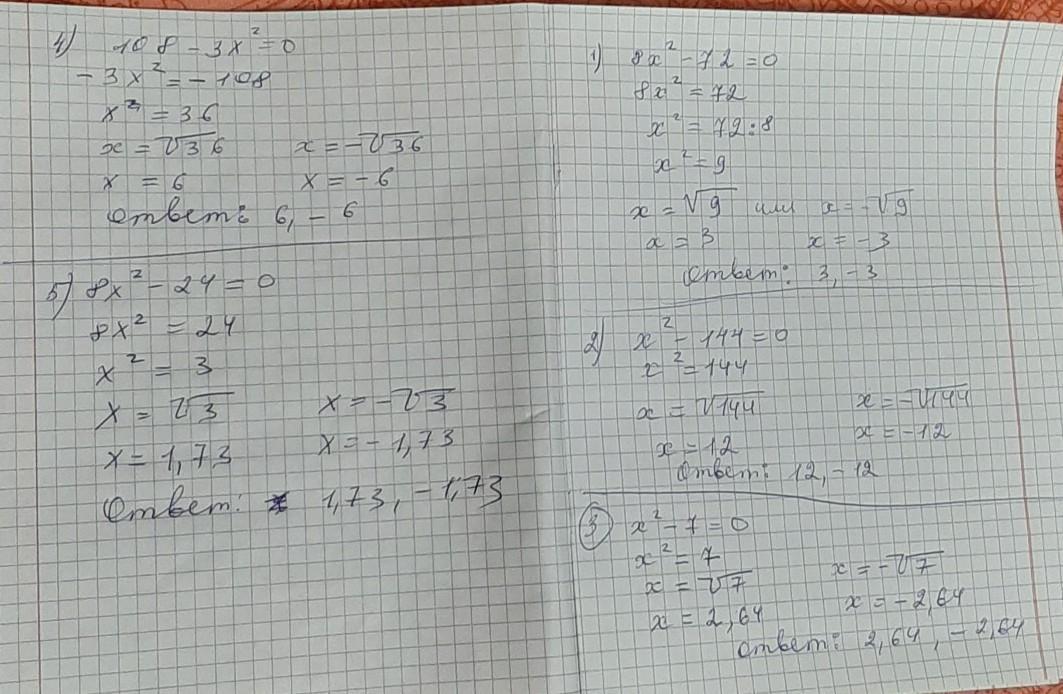 4) 108 - 3x² = 0
- 3x² = - 108
x² = 36
x = √36 x = -√36
x = 6 x = - 6
Ответ: 6, - 6
5) 8x² - 24 = 0
8x² = 24
x² = 3
x = √3 x = -√3
x = 1,73 x = - 1,73
Ответ: 1,73, - 1,73
1) 8x² - 72 = 0
8x² = 72
x² = 72 : 8
x² = 9
x = √9 или x = -√9
x = 3 x = -3
Ответ: 3, -3
2) x² - 144 = 0
x² = 144
x = √144 x = -√144
x = 12 x = -12
Ответ: 12, - 12
3 x² - 7 = 0
x² = 7
x = √7 x = -√7
x = 2,64 x = - 2,64
Ответ: 2,64, - 2,64